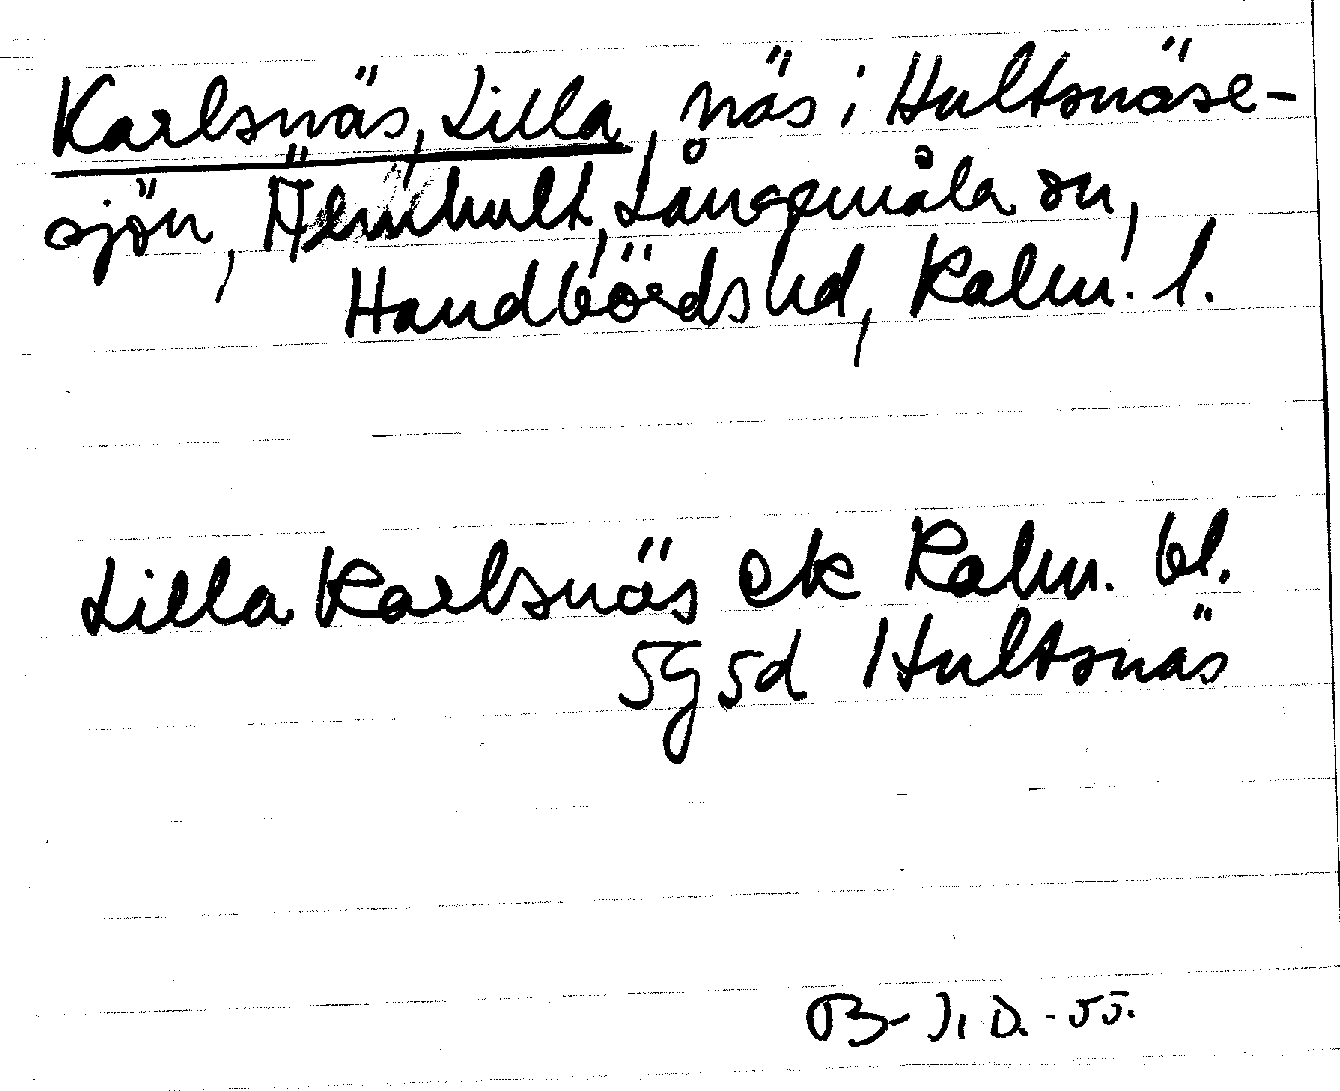 Karlsnäs, Lilla, näs i Hultsnäse-
sjön, Älemhult, Långemåla sn,
Handbörds hd, Kalm. l.
Lilla Karlsnäs ek Kalm. bl.
5g5d Hultsnäs
B-J, D. -55.